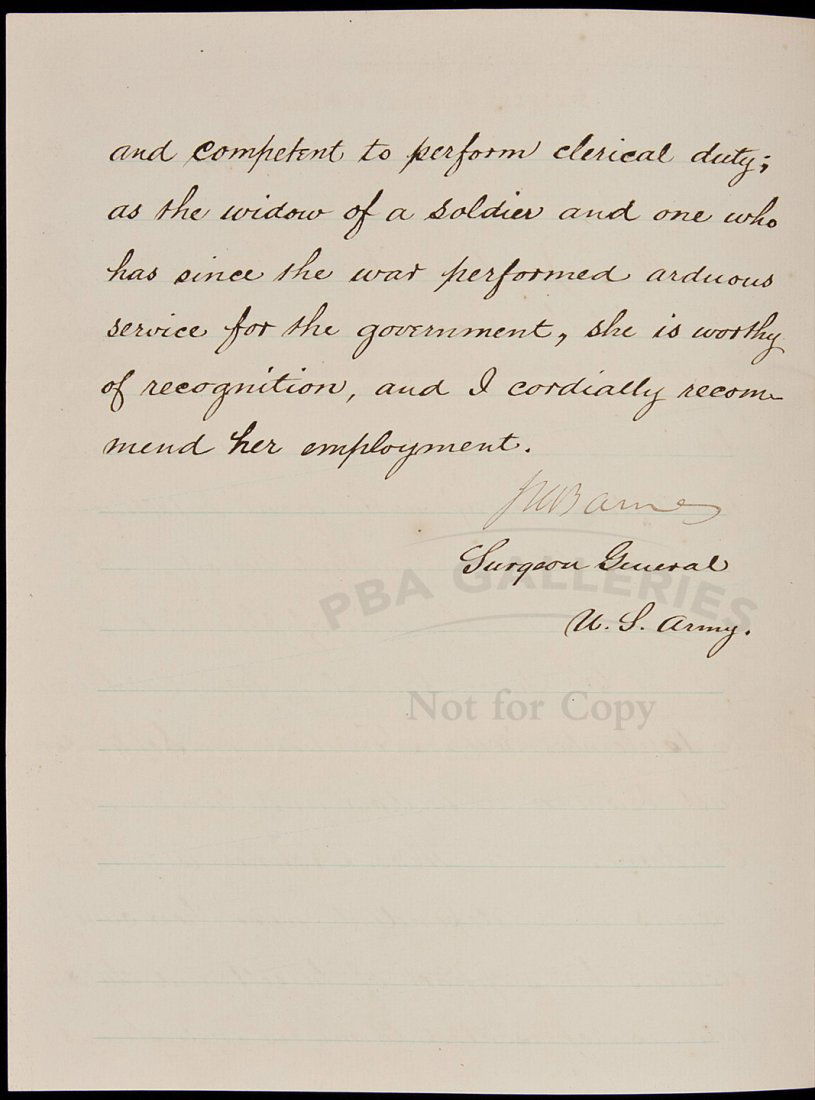 and competent to perform clerical duty;
as the widow of a soldier and one who
has since the war performed arduous
service for the government, she is worthy
of recognition, and I cordially recom-
mend her employment.
JKBarnes
Surgeon General
U. S. Army.
PBA GALLERIES
Not for Copy